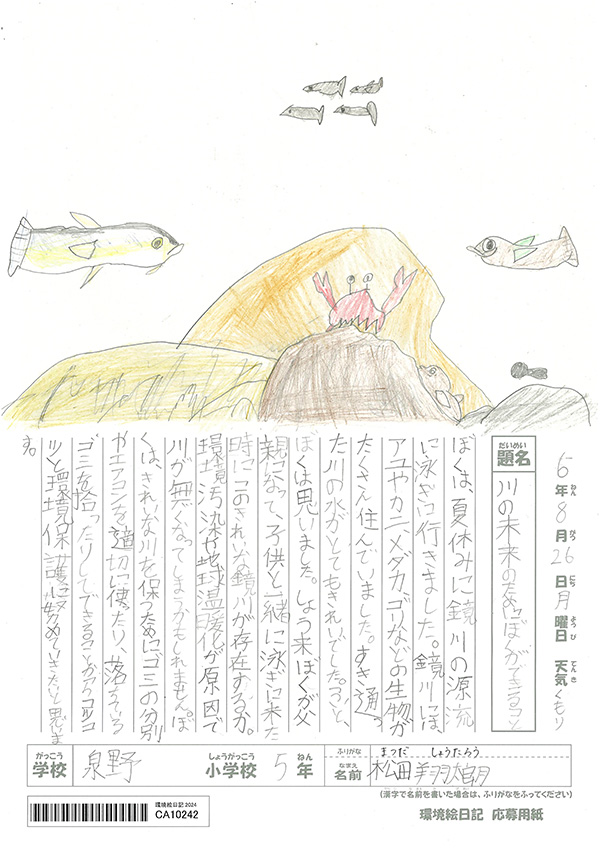 6年8月26日月曜日 天気くもり
ねん がつ にち ようび てんき
だいめい
題名 川の未来のためにぼくができること
ぼくは、夏休みに鏡川の源流
に泳ぎに行きました。鏡川には、
アユやカニ、メダカ、ゴリなどの生物が
たくさん住んでいました。すき通っ
た川の水がとてもきれいでした。ふと、
ぼくは思いました。しょう来ぼくが父
親になって、子供と一緒に泳ぎに来た
時にこのきれいな鏡川が存在するか。
環境汚染や地球温暖化が原因で
川が無くなってしまうかもしれません。ぼ
くは、きれいな川を保つためにゴミの分別
やエアコンを適切に使ったり、落ちている
ゴミを拾ったりしてできることからコツコ
ツと環境保護に努めていきたいと思いま
す。
がっこう しょうがっこう ねん
学校 泉野 小学校 5年
ふりがな まつだ しょうたろう
なまえ
名前 松田 翔太朗
(漢字で名前を書いた場合は、ふりがなをふってください)
環境絵日記2024
CA10242
環境絵日記 応募用紙